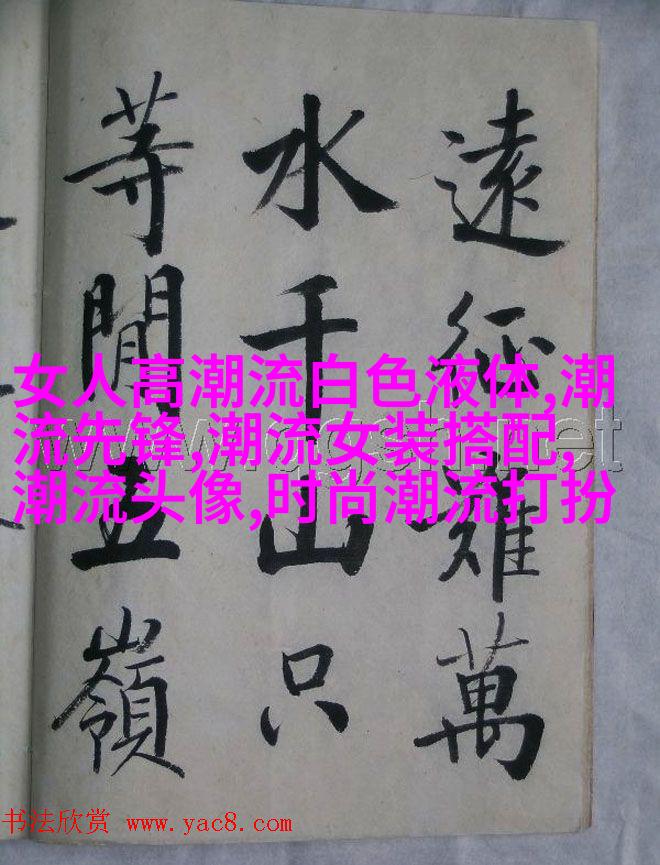 遠征難萬
水千山只
等閒五嶺
女人高潮流白色液体,潮
流先锋,潮流女装搭配,
潮流头像,时尚潮流打扮
书法欣赏 www.yac8.com